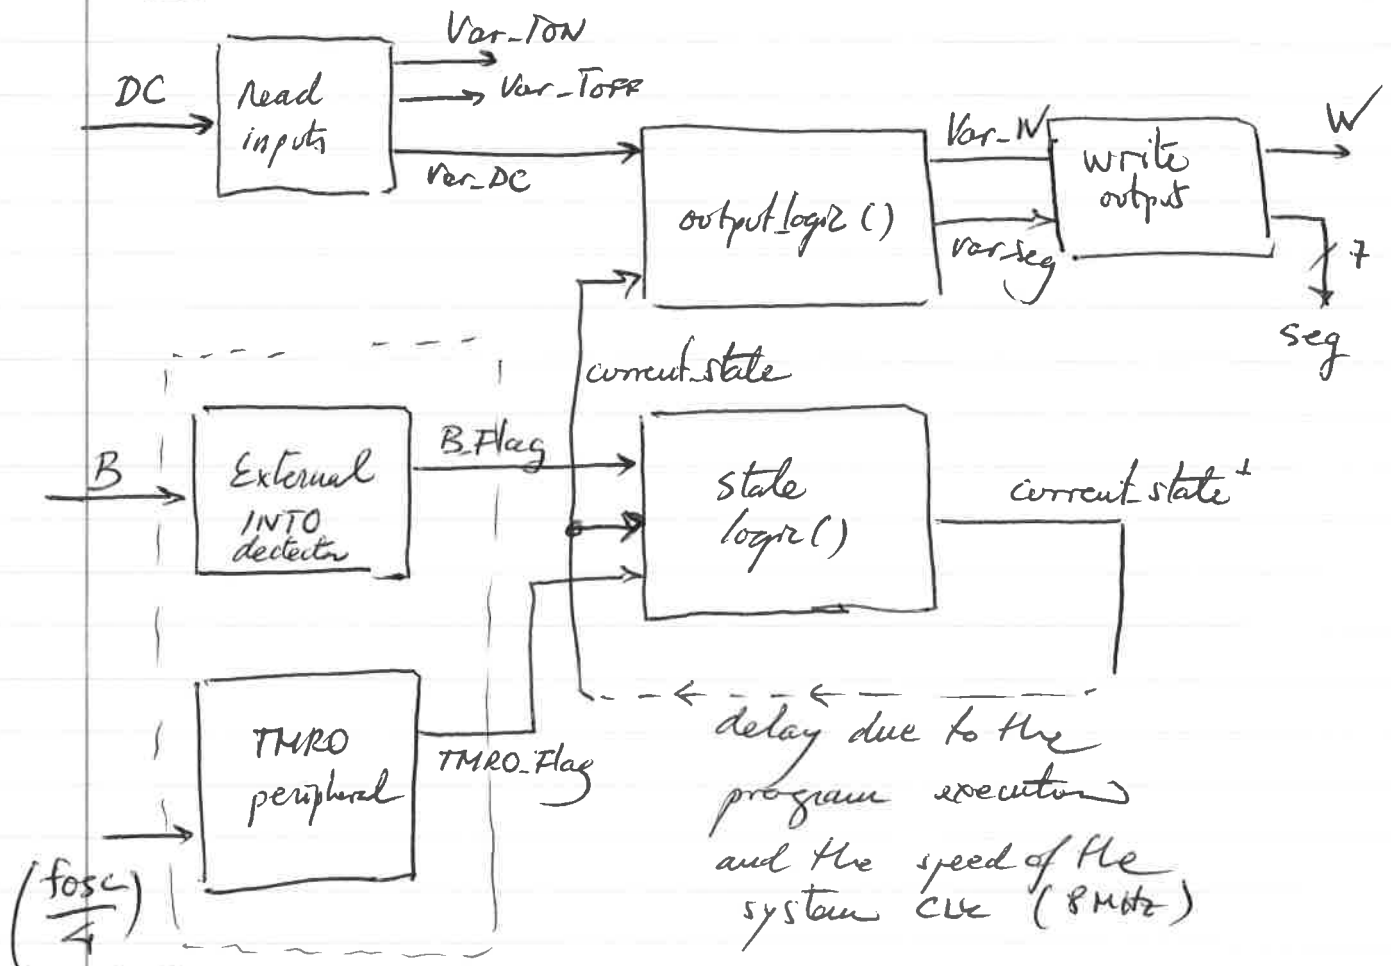 Var_TON
DC
Read
inputs
Var_TOFF
Var_DC
output_logic ()
Var_W
var_seg
write
output
W
7
seg
current_state
B
External
INT0
dectector
B_Flag
state
logic()
current_state+
TMR0
peripheral
TMR0_Flag
(fosc
4)
delay due to the
program execution
and the speed of the
system CLK (8 MHz)